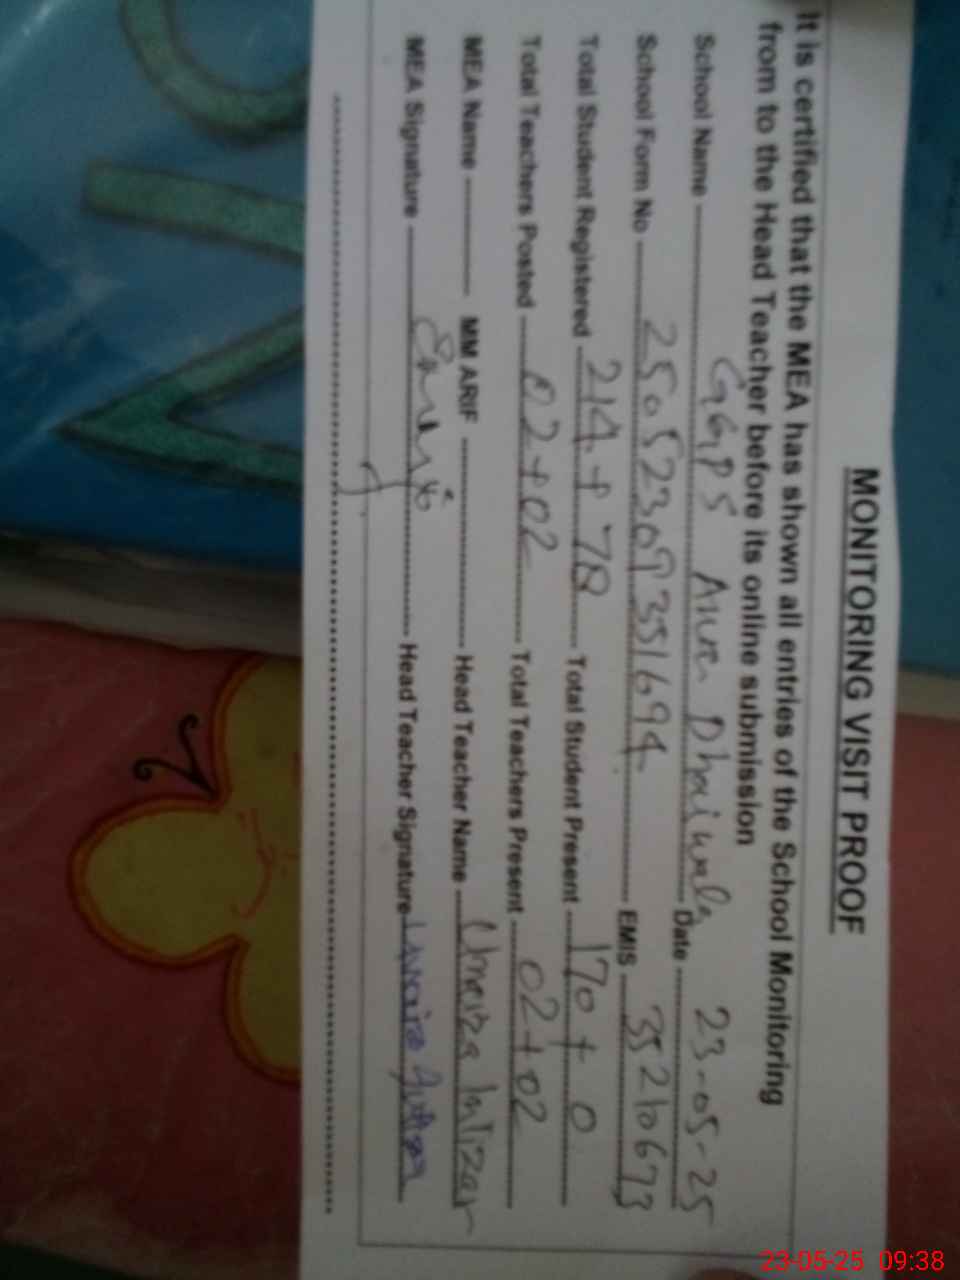 MONITORING VISIT PROOF
It is certified that the MEA has shown all entries of the School Monitoring
from to the Head Teacher before its online submission
School Name GGPS Dhaiwala Date 23-05-25
School Form No 25052309351694 EMIS 35210673
Total Student Registered 214+78 Total Student Present 170+0
Total Teachers Posted 02+02 Total Teachers Present 02+02
MEA Name MM ARIF Head Teacher Name Umeiza Intizar
MEA Signature Head Teacher Signature
23-05-25 09:38